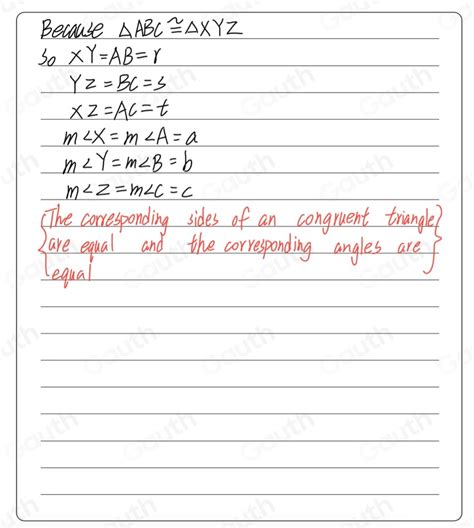 Because △ABC ≅ △XYZ
So XY=AB=r
YZ=BC=s
XZ=AC=t
m∠X=m∠A=a
m∠Y=m∠B=b
m∠Z=m∠C=c
{The corresponding sides of an congruent triangle}
are equal and the corresponding angles are
equal